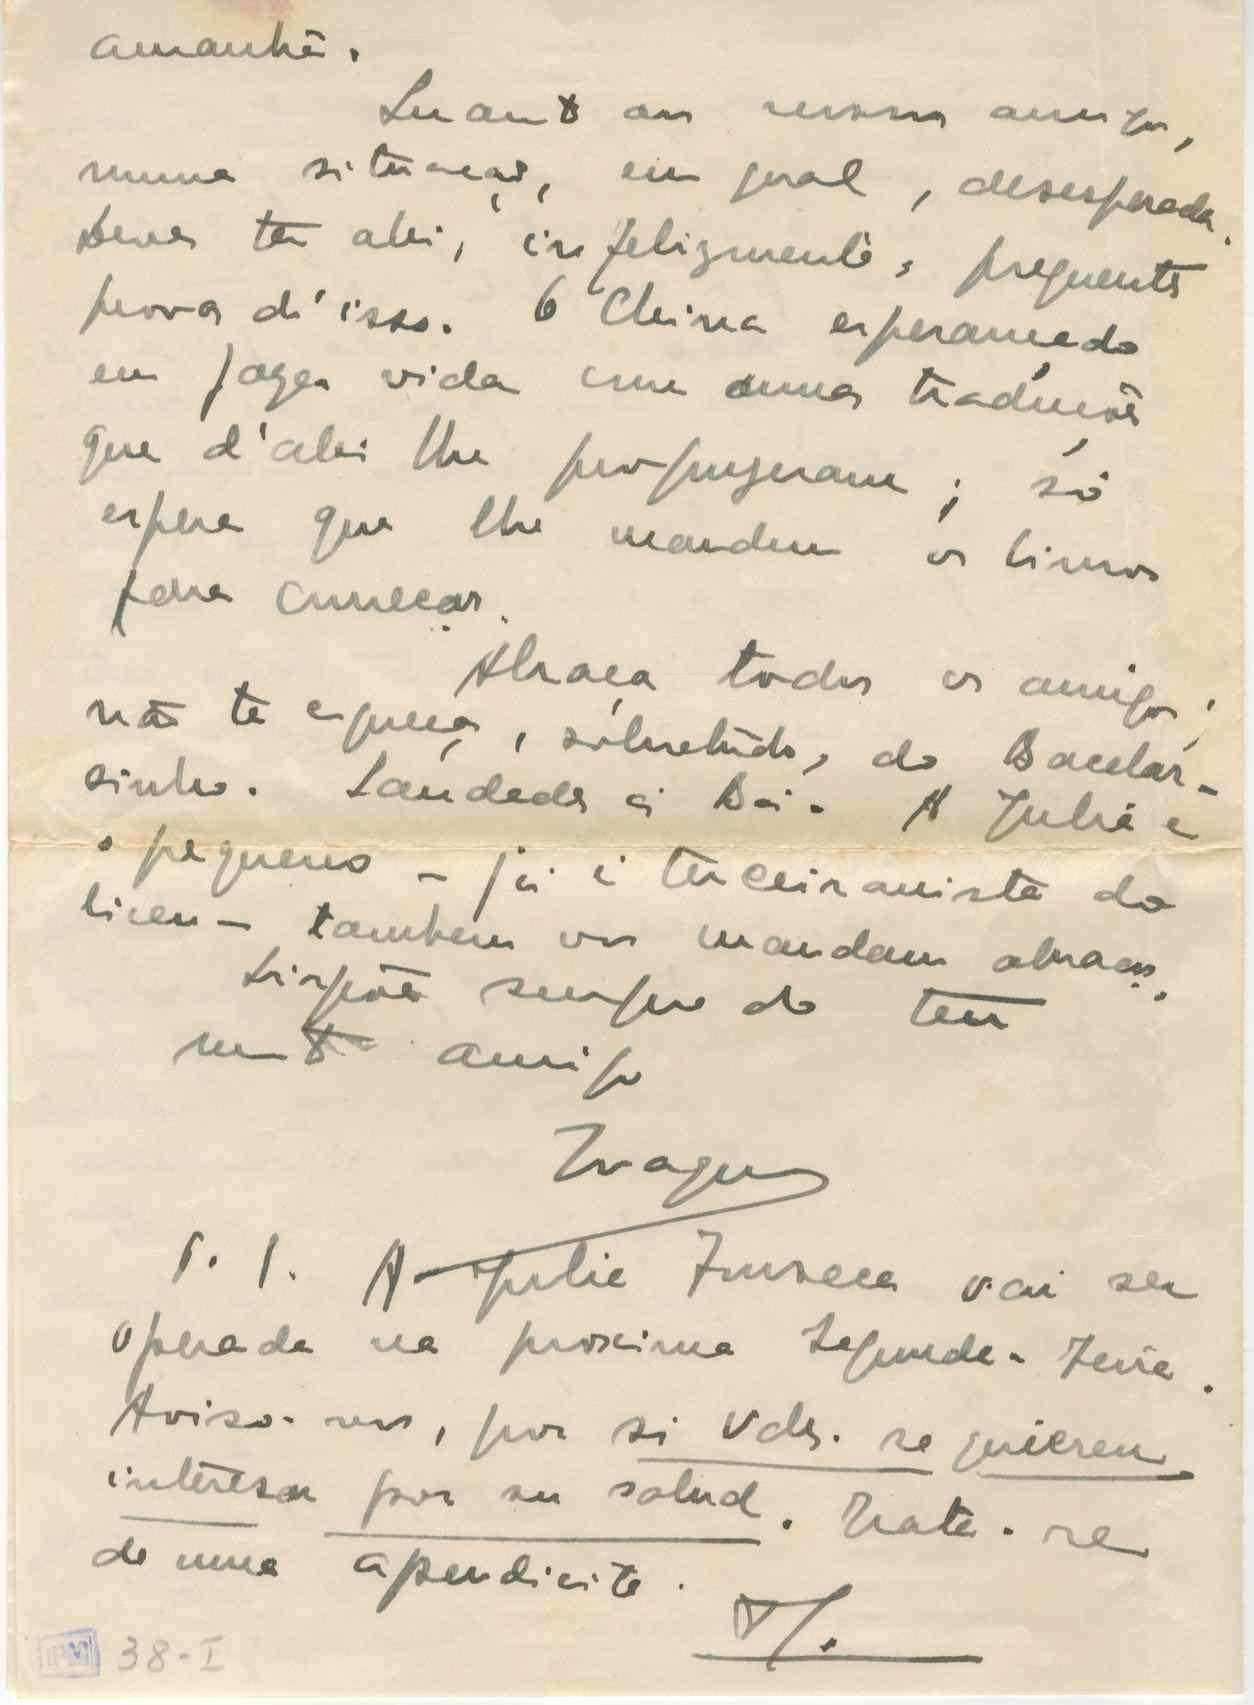 amanhã.
Quanto aos nossos amigos,
numa situação, em geral, desesperada.
Deves ter ahi, infelizmente, frequentes
provas d'isso. O China esperançado
em fazer vida com umas traduções
que d'ahi lhe propuzeram; só
espera que lhe mandem os livros
para começar.
Abraça todos os amigos;
não te esqueças, sobretudo, do Bacelar-
sinho. Saudades á Bai. A Julia e
o pequeno - já é terceiranista do
liceu - tambem vos mandam abraços.
Dispõe sempre do teu
mto amigo
P. S. A Julia Fonseca vai ser
operada na proxima Segunda-Feira.
Aviso-vos, por si Vds. se quieren
interesar por su salud. Trata-se
de uma apendicite.
IPM 38-I